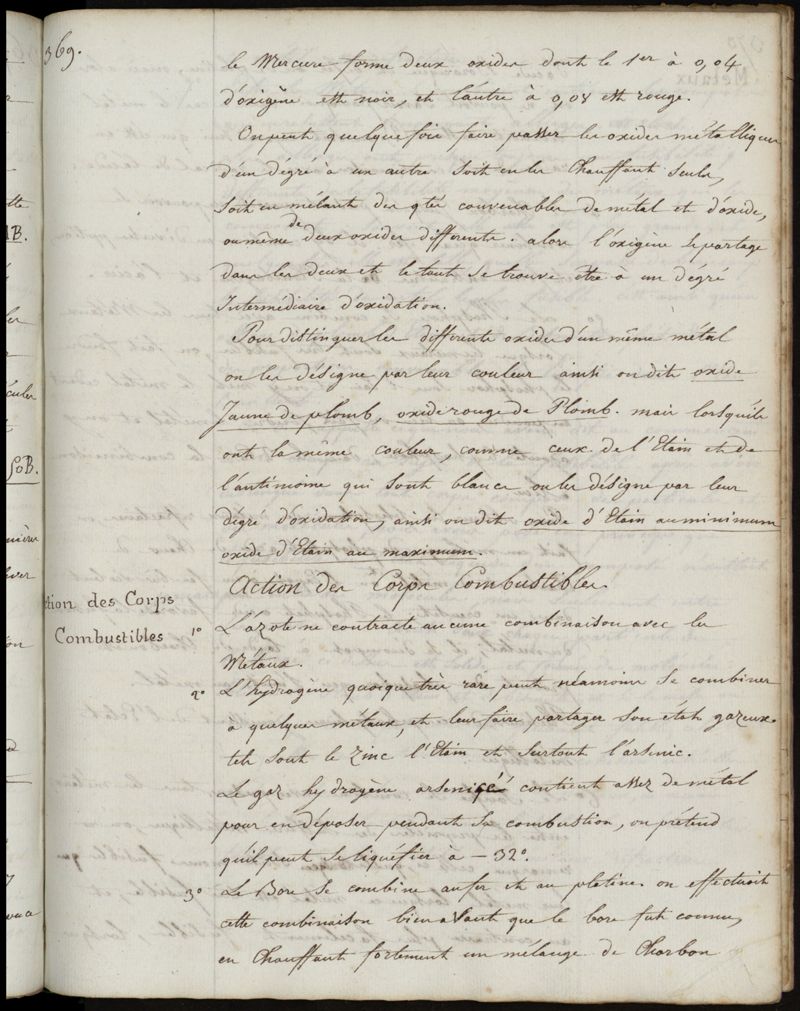 369.
le Mercure forme deux oxides dont le 1er à 0,04
d'oxigène est noir, et l'autre à 0,08 est rouge.
On peut quelque fois faire passer les oxides métalliques
d'un dégré à un autre soit en les chauffant seuls,
soit en mêlant des qtés convenables de métal et d'oxide,
ou même de deux oxides différents. alors l'oxigène se partage
dans les deux et le tout se trouve être à un dégré
Intermédiaire d'oxidation.
Pour distinguer les différents oxides d'un même métal
on les désigne par leur couleur ainsi on dit oxide
Jaune de plomb, oxide rouge de Plomb. mais lorsqu'ils
ont la même couleur, comme ceux de l'Etain et de
l'antimoine qui sont blancs on les désigne par leur
dégré d'oxidation, ainsi on dit oxide d'Etain au minimum
oxide d'Etain au maximum.
Action des Corps Combustibles.
tion des Corps
Combustibles
1° L'azote ne contracte aucune combinaison avec les
Métaux.
2° L'hydrogène quoique très rare peut néamoins se combiner
à quelques métaux, et leur faire partager son état gazeux.
tels sont le Zinc l'Etain et surtout l'arsenic.
Le gaz hydrogène arseniqé contient assez de métal
pour en déposer pendant sa combustion, on prétend
qu'il peut se liquéfier à - 32°.
3° Le Bore se combine au fer et au platine. on effectuoit
cette combinaison bien avant que le bore fut connu,
en chauffant fortement un mélange de Charbon